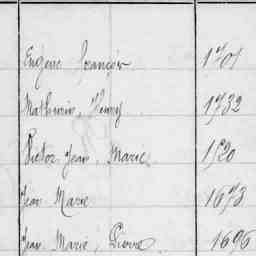 Eugène François 1701
Mathurin, Henry 1732
Victor, Jean, Marie 1520
Jean Marie 1673
Jean, Marie, Pierre 1696